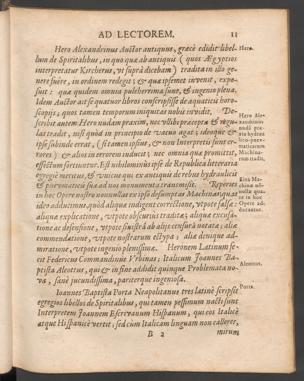 AD LECTOREM. 11
Hero Alexandrinus Auctor antiquus, græcè edidit libel-
lum de Spiritalibus, in quo quæ ab antiquis (quos Ægyptios
interpretatur Kircherus, ut suprà dicebam) tradita in illo ge-
nere fuêre, in ordinem redegit; & quæ ipsemet invenit, expo-
suit: quæ quidem omnia pulcherrima sunt, & ingenij plena.
Idem Auctor ait se quatuor libros conscripsisse de aquaticis horo-
scopijs, quos tamen temporum iniquitas nobis invidit. De-
stribit autem Hero nudam praxim, nec ullibi præcepta & regu-
las tradit, nisi quòd in principio de vacuo agat; ideoque &
ipse subinde errat, (si tamen ipsius, & non Interpretis sunt er-
rores) & alios in errorem inducit; nec omnia quæ promittit,
effectum sortiuntur. Est nihilominus ipse de Republica litteraria
egregiè meritus, & unicus qui ex antiquis de rebus hydraulicis
& pneumaticis sua ad nos monumenta transmisit. Reperies
in hoc Opere nostro nonnullas ex ipso desumptas Machinas, quas
ideo adduximus, quòd aliqua indigent correctione, utpote falsæ:
aliqua explicatione, utpote obscuriùs traditæ; aliqua excusa-
tione ac defensione, utpote sinistrè ab alijs censurâ notatæ; aliæ
commendatione, utpote nostrarum ectypa; aliæ denique ad-
miratione, utpote ingenio plenissimæ. Heronem Latinum fe-
cit Federicus Commandinus Urbinas; Italicum Joannes Ba-
ptista Aleottus, qui & in fine addidit quinque Problemata no-
va, sanè jucundissima, pariterque ingeniosa.
Ioannes Baptista Porta Neapolitanus tres latinè scripsit
egregios libellos de Spiritalibus, qui tamen pessimum nacti sunt
Interpretem Joannem Escrivanum Hispanum, qui eos Italicè
atque Hispanicè vertit, sed cùm Italicam linguam non calleret,
B 2 mirum
Hero.
Hero Ale-
xandrinus
nudã pra-
xin hydrau-
lico-pneu-
maticarum
Machina-
rum tradit,
Eius Ma-
chinæ non-
nullæ qua-
re in hoc
Opere ad-
ducantur.
Aleottus.
Porta.